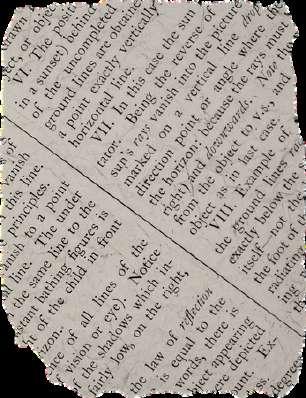 VI. The poste
in a sunset) behin
of the uncompleted
ground lines are obtaine
a point exactly vertically
horizontal line.
VII. In this case the sun
tator. Being the reverse of
sun's rays vanish into the picture
marked on a vertical line drop
direction point or angle where the
the horizon: because the rays must
right) and downwards. Now
from the object to v.s., and
object, as in last case.
VIII. Example of
the ground line
exactly below the
itself—not the
the foot of
radiati
ing
vanish
this line.
principles.
nish to a point
line. The under
the same line to the
scent bathing figures is
of the child in front
zon.
ce of all lines of the
f vision or eye). Notice
the shadows which in-
fairly low, on the right,
the law of reflection
is equal to the
words, there is
ject appearing
ere depicted
Ex-
degrees